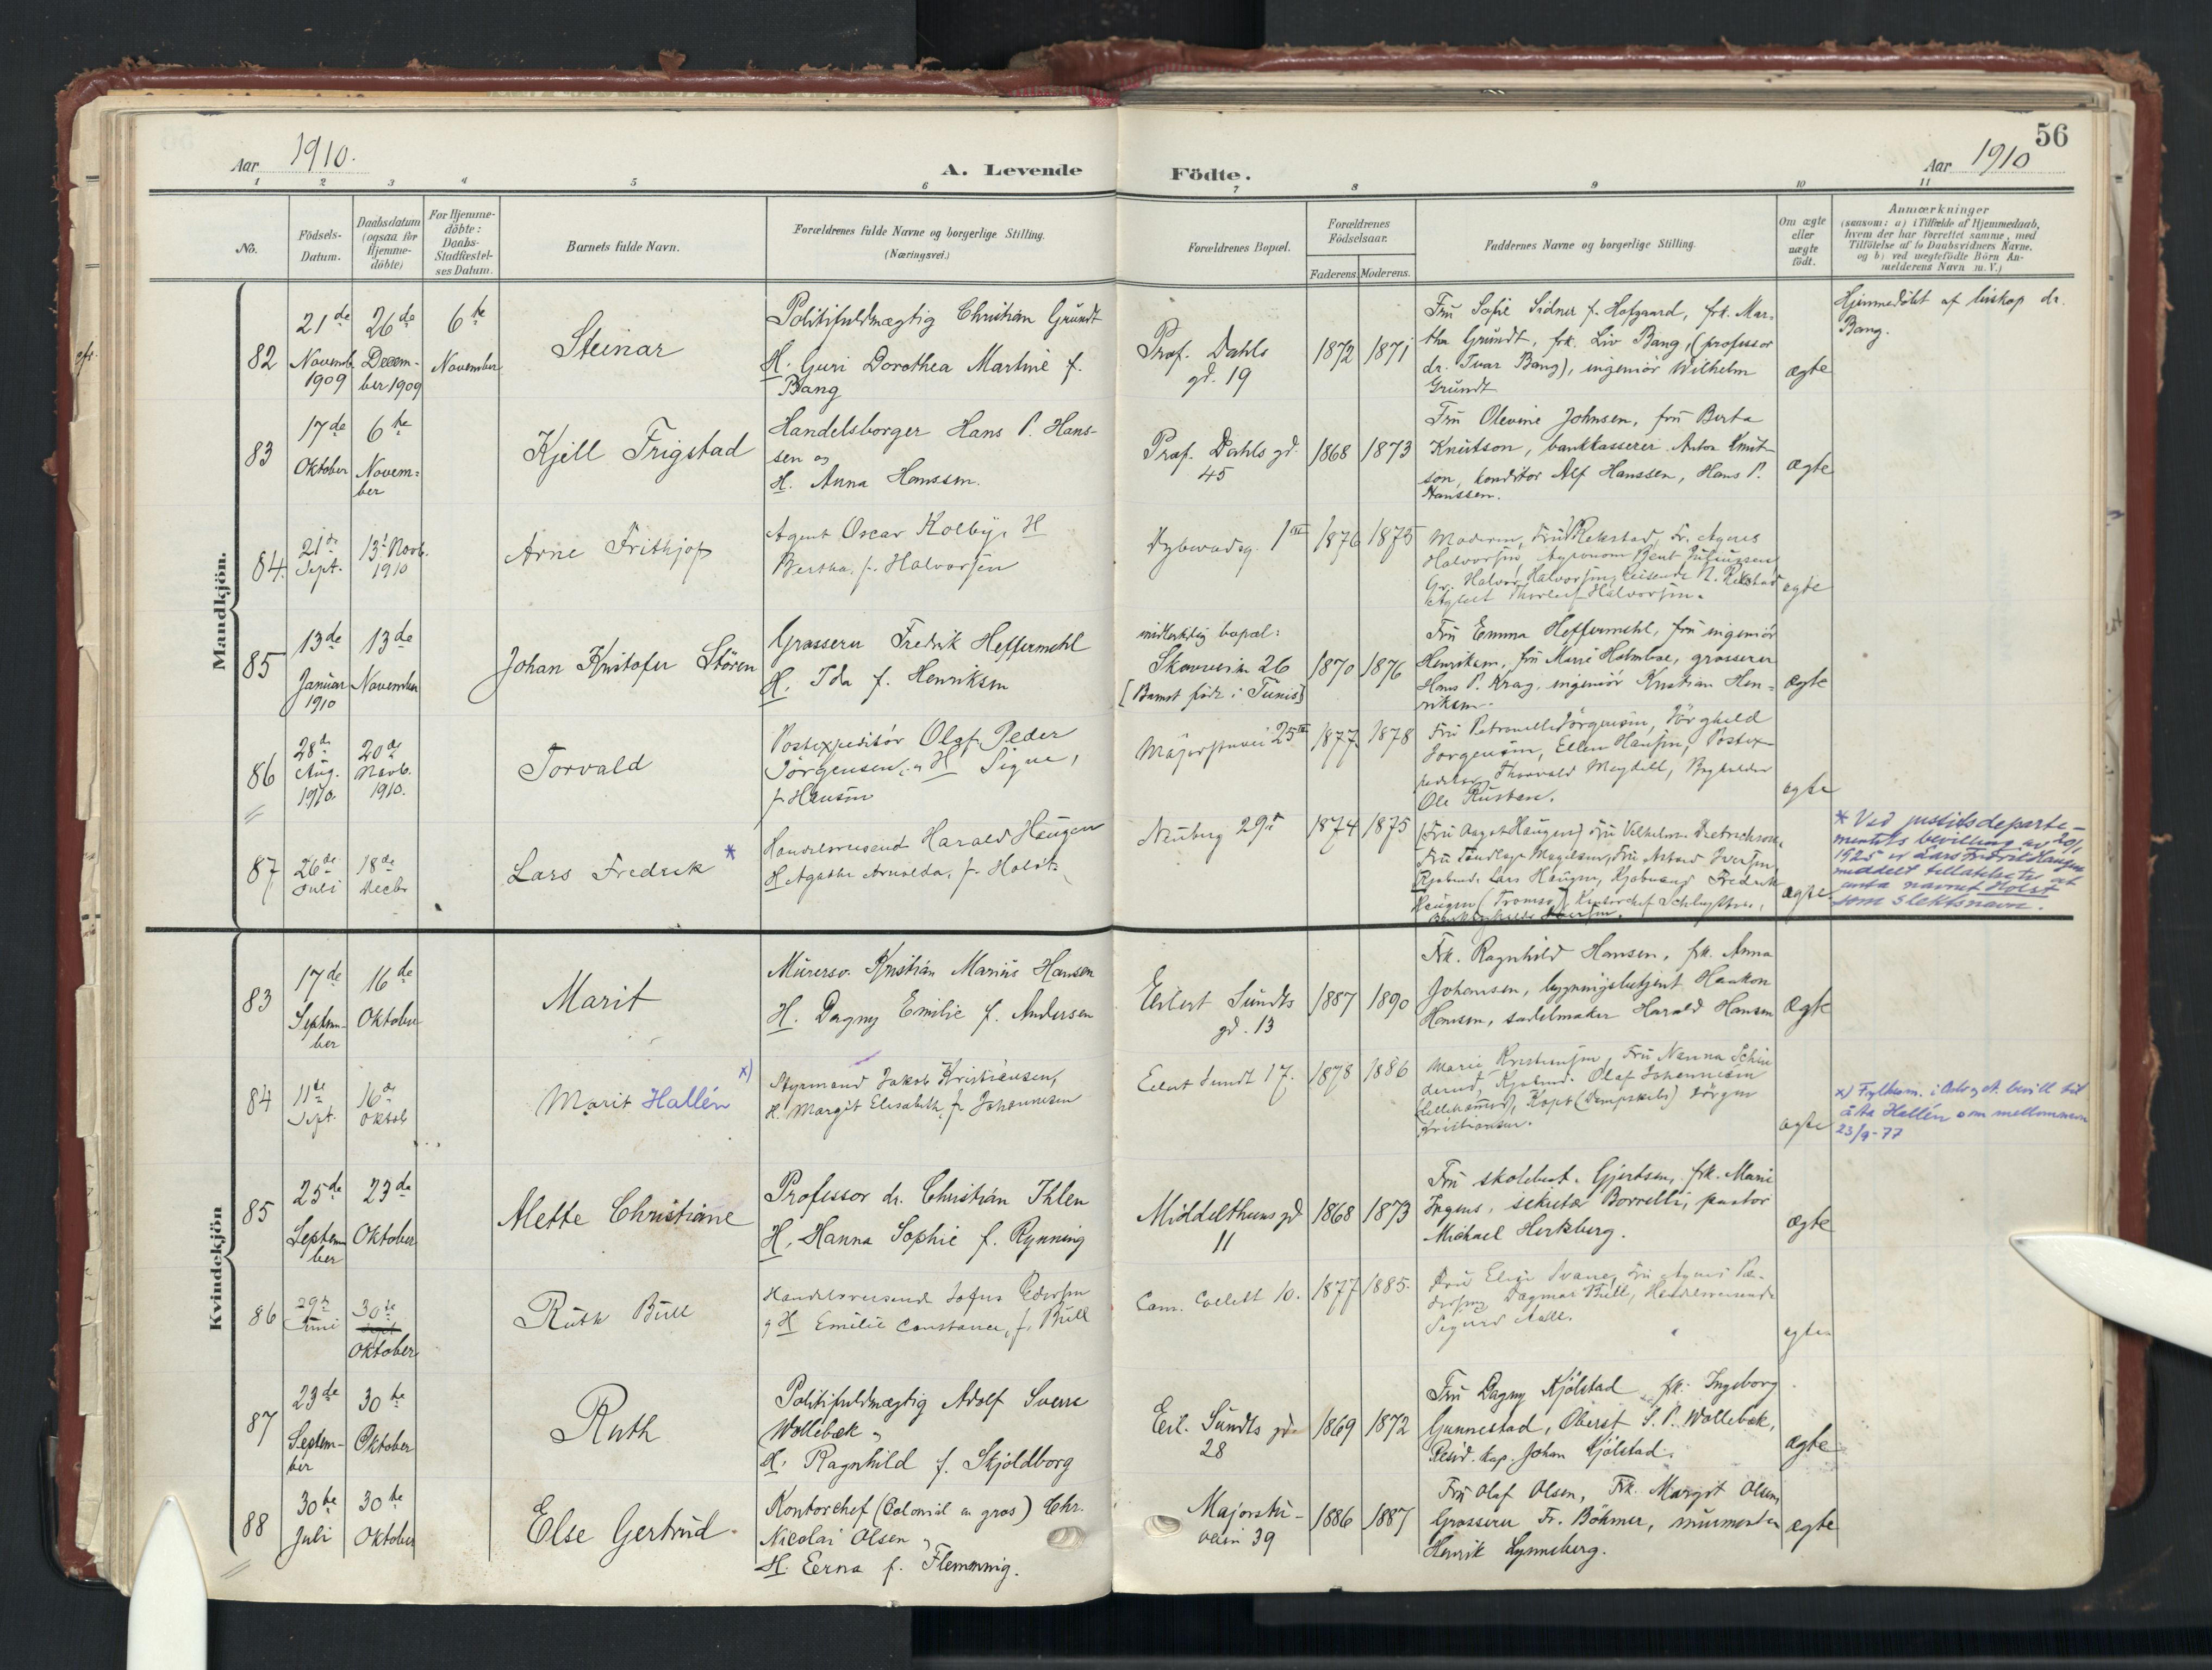 56
Aar 1910.
A. Levende Födte.
Aar 1910
1 2 3 4 5 6 7 8 9 10 11
No.
Födsels-
Datum.
Daabsdatum
(ogsaa for
Hjemme-
döbte)
For Hjemme-
döbte:
Daabs-
Stadfæstel-
ses Datum.
Barnets fulde Navn.
Forældrenes fulde Navne og borgerlige Stilling.
(Næringsvei.)
Forældrenes Bopæl.
Forældrenes
Födselsaar.
Faderens. Moderens.
Faddernes Navne og borgerlige Stilling.
Om ægte
eller
uægte
födt.
Anmærkninger
(saasom: a) i Tilfælde af Hjemmedaab,
hvem der har forrettet samme, med
Tilföielse af to Daabsvidners Navne,
og b) ved uægtefödte Börn An-
melderens Navn m. V.)
Mandkjön.
82
21de
Novemb.
1909
26de
Decem-
ber 1909
6te
November
Steinar
Politifuldmægtig Christian Grundt
H. Guri Dorothea Martine f.
Bang
Prof. Dahls
gd. 19
1872
1871
Fru Sofie Sidner f. Hofgaard, frk. Mar-
tha Grundt, frk. Liv Bang, (professor
dr. Ivar Bang), ingeniör Wilhelm
Grundt
ægte
Hjemmedöbt af biskop dr.
Bang.
83
17de
Oktober
6te
Novem-
ber
Kjell Frigstad
Handelsborger Hans P. Hans-
sen og
H. Anna Hanssen.
Prof. Dahls gd.
45
1868
1873
Fru Olevine Johnsen, fru Berta
Knutson, bankkasserer Anton Knut-
son, konditor Alf Hanssen, Hans P.
Hanssen.
ægte
84.
21de
Sept.
13de Novb.
1910
Arne Frithjof
Agent Oscar Kolby, H
Bertha, f. Halvorsen
Dybwadsg. 1 III
1876
1875
Moderen, Fru Rekstad, Fr. Agnes
Halvorsen, Agronom Bent
Gr. Halvor Halvorsen, Reisende N. Rekstad
Thorleif Halvorsen.
ægte
85
13de
Januar
1910
13de
November
Johan Kristofer Stören
Grosserer Fredrik Heffermehl
H. Ida f. Henriksen
midlertidig bopæl:
Skovveien 26
[Barnet född i Tunis]
1870
1876
Fru Emma Heffermehl, fru ingeniör
Henriksen, fru Marie Holmboe, grosserer
Hans P. Krag, ingeniör Kristian Hen-
riksen.
ægte
86
28de
Aug.
1910.
20de
Novb.
1910.
Torvald
Postexpeditör Olaf Peder
Jörgensen, H Signe,
f. Hansen
Majorstuvei 25 III
1877
1878
Fru Petronelle Jörgensen, Jörghild
Jorgensen, Ellen Hansen, Postex-
peditör Thorvald Meydell, Bryholder
Ole Rustad.
ægte
87
26de
Juli
18de
Decbr
Lars Fredrik *
Handelsreisend Harald Haugen
H Agathe Arnolda, f. Holst
Neuberg 29
1874
1875
(Fru Aagot Haugen) Fru Vilhelm Dietrichson,
Fru Magelssen, Fru Iversen,
Kjøbmd. Lars Haugen, Kjøbmand Fredrik
Haugen (Tromsø), Kontorchef
ægte.
* Ved justitsdeparte-
mentets bevilling av 20/1
1925 er Lars Fredrik Haugen
meddelt tillatelse til at
anta navnet Holst
som slektsnavn.
Kvindekjön
83
17de
Septem-
ber
16de
Oktober
Marit
Murersv. Kristian Marius Hansen
H. Dagny Emilie f. Andersen
Eilert Sundts
gd. 13
1887
1890
Frk. Ragnhild Hansen, frk. Anna
Johansen, bygningsbetjent Haakon
Hansen, sadelmaker Harald Hansen
ægte
84
11de
Sept.
16de
Oktob
Marit Hallén x)
Styrmand Jakob Kristiansen,
H. Margit Elisabeth, f. Johannesen
Eilert Sundt 17.
1878
1886
Marie Kristiansen, Fru Nanna Schin-
Kjøbmd. Olaf Johannesen
(Lillehammer), Kapt (Dampskibs) Jörgen
Kristiansen.
ægte
x) Fylkesm. i Oslo gt. bevill til
å ta Hallén som mellomnavn
23/9-77
85
25de
Septem
ber
23de
Oktober
Mette Christiane
Professor dr. Christian Ihlen
H. Hanna Sophie f. Rynning
Middelthuns gd
11
1868
1873
Fru skolebest. Gjertsen, frk. Marie
Ingens, sekretær Borrelli, pastor
Michael Hertzberg.
ægte
86
29de
Juni
30te
Sept
Oktober
Ruth Bull
Handelsreisende Sofus Pedersen
og H Emilie Constance, f. Bull
Cam. Collett 10.
1877
1885.
Fru Elise Svane, Fru Agnes Pe-
dersen, Dagmar Bull, Handelsreisende
Sigurd Aall.
ægte
87
23de
Septem-
ber
30te
Oktober
Ruth
Politifuldmægtig Adolf Sverre
Wollebæk og
H. Ragnhild f. Skjoldborg
Eil. Sundts gd.
28
1869
1872
Fru Dagny Kjölstad, frk. Ingeborg
Gunnestad, Oberst S. P. Wollebæk,
Resid. kap. Johan Kjölstad.
ægte
88
30te
Juli
30te
Oktober
Else Gertrud.
Kontorchef (Colonial en gros) Chr.
Nicolai Olsen og
H. Erna f. Flemming.
Majorstu-
veien 39
1886
1887
Fru Olaf Olsen, Frk. Margit Olsen,
Grosserer Fr. Böhmer, murmester
Henrik Lynneberg.
ægte